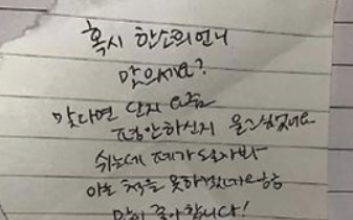 혹시 한소희언니
맞으세요?
맞다면 단지 요즘
평안하신지 묻고싶었어요
쉬는데 폐가 될까봐
아는 척을 못하겠네요ㅎㅎ
많이 좋아합니다!